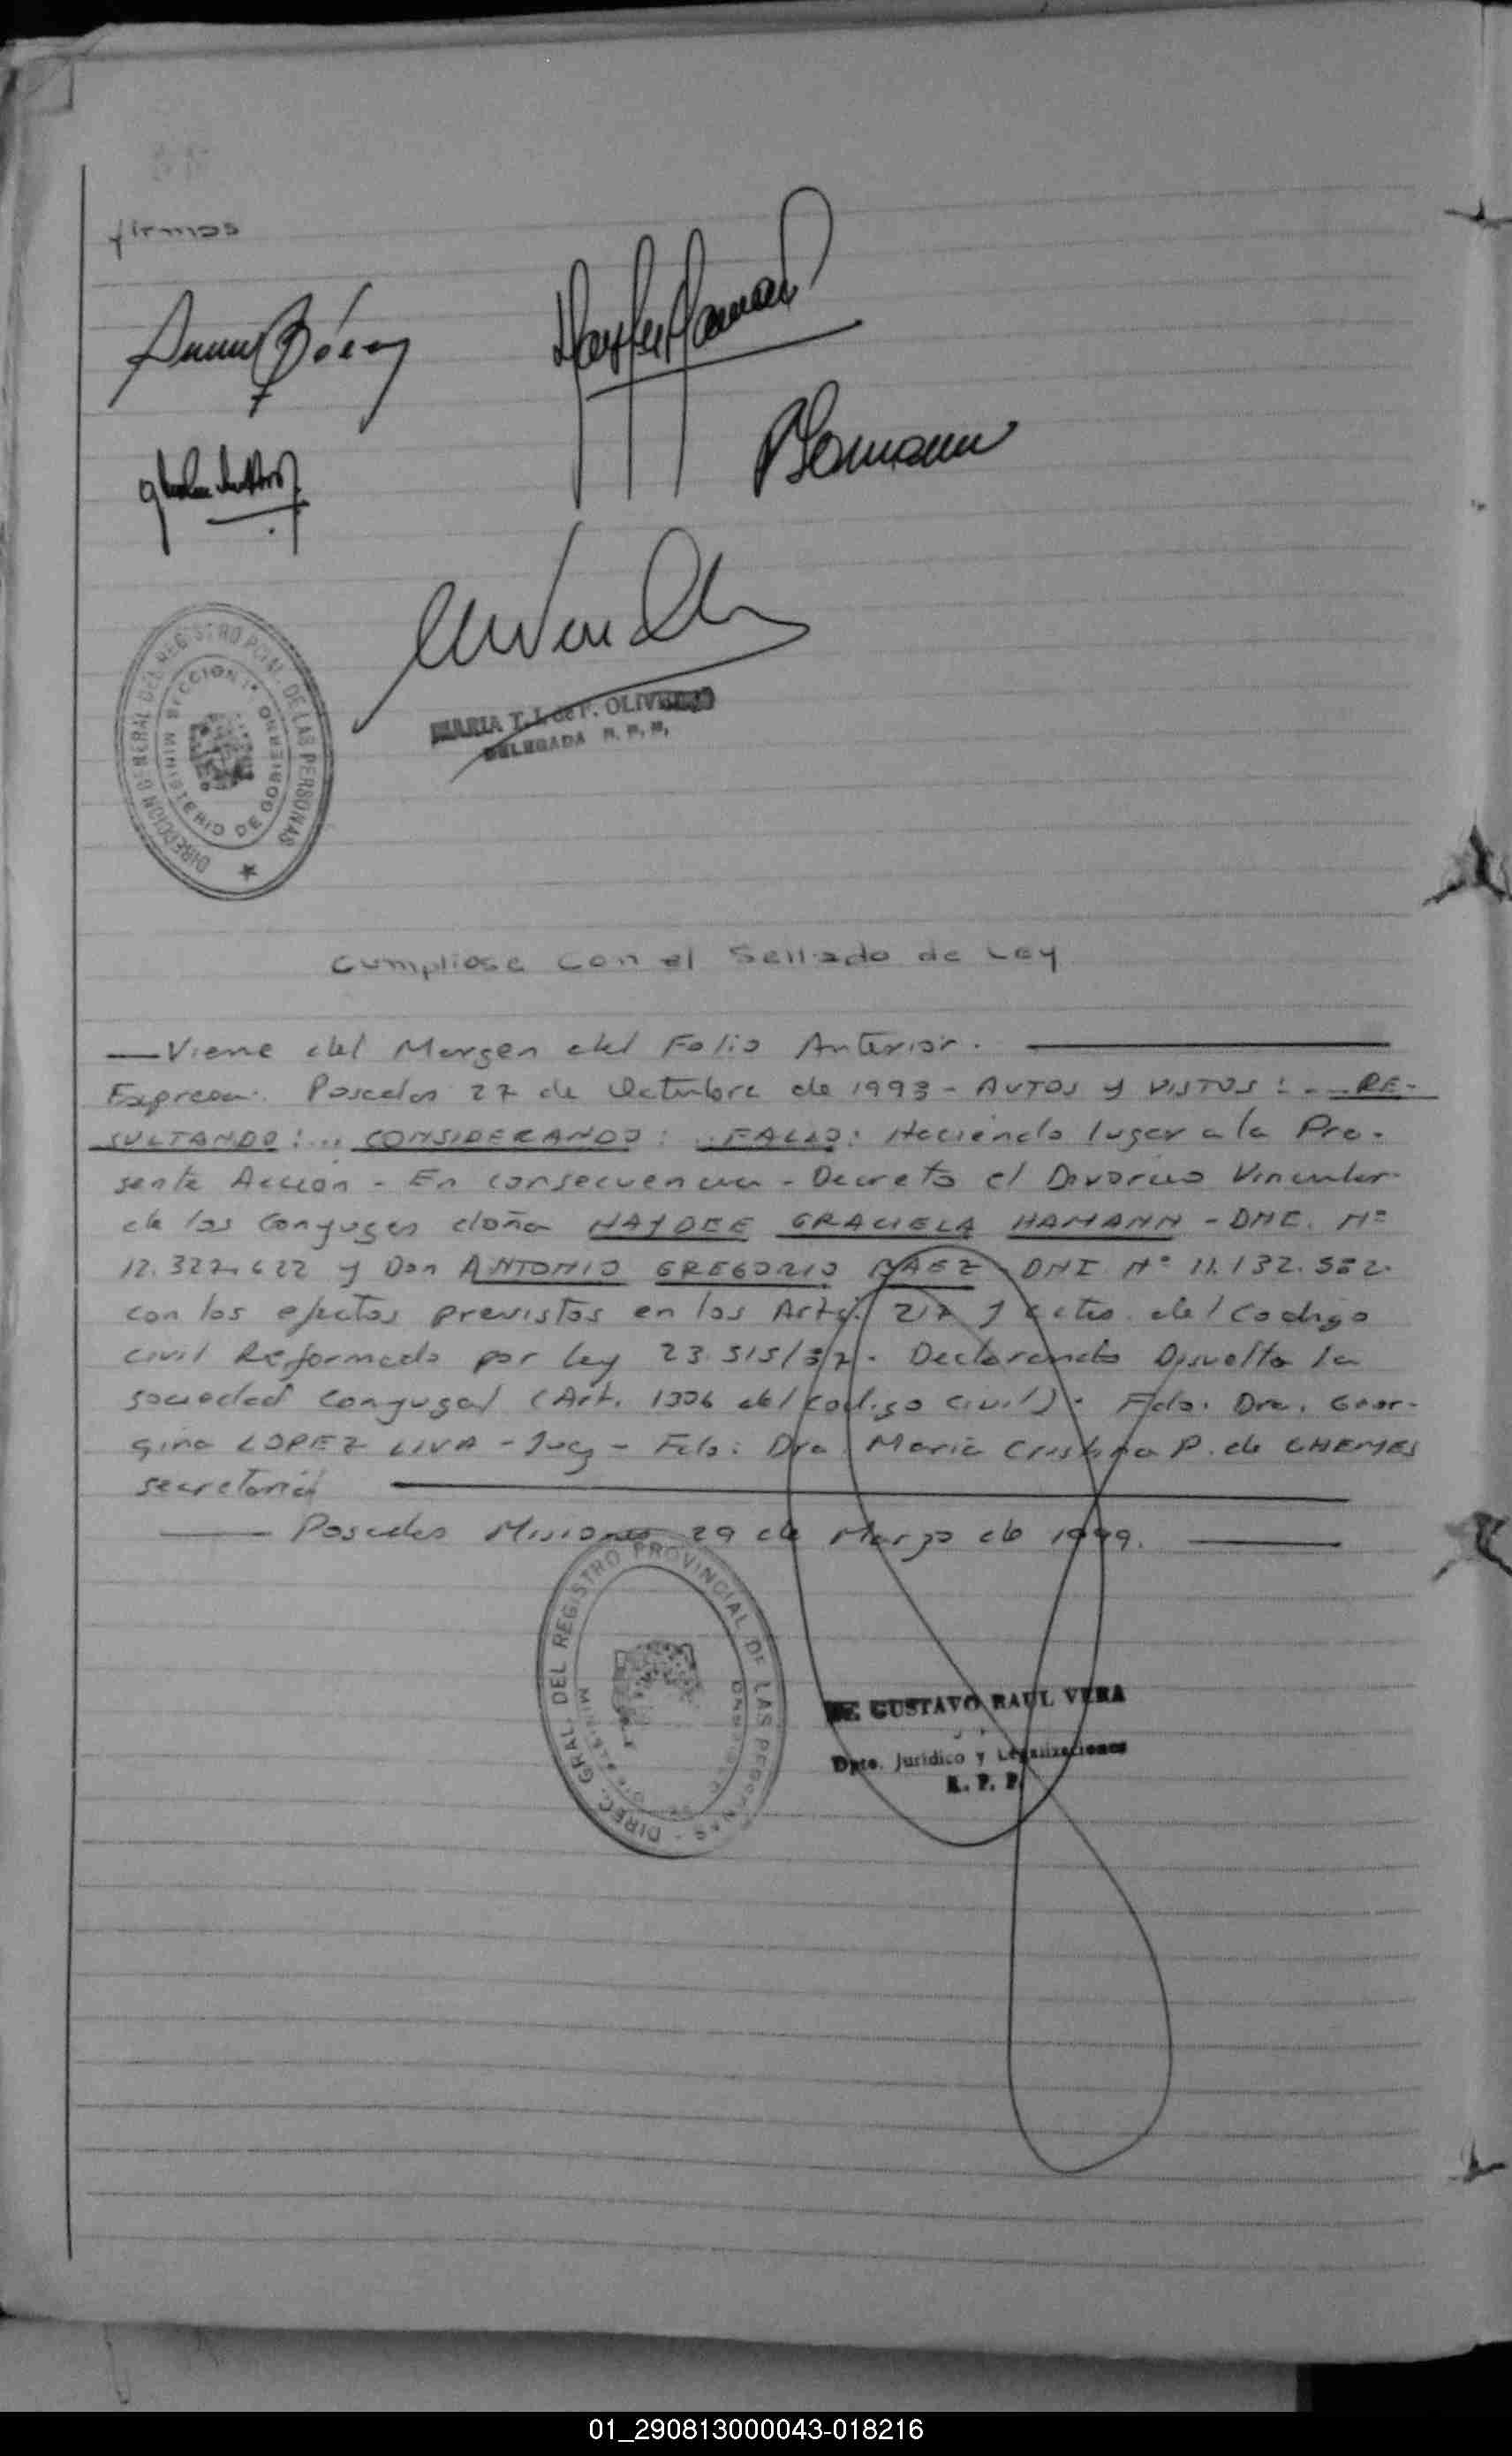 firmas
MARIA T. J. de F. OLIV
DELEGADA R. P. P.
DIRECCION GENERAL DEL REGISTRO PCIAL. DE LAS PERSONAS
MINISTERIO DE GOBIERNO
SECCION 1ª
Cumpliose con el Sellado de Ley
—Viene del Margen del Folio Anterior.
Expresa: Posadas 27 de Octubre de 1993 - AUTOS y VISTOS: ... RE-
SULTANDO:... CONSIDERANDO: ...FALLO: Haciendo lugar a la Pre-
sente Acción - En consecuencia - Decreto el Divorcio Vincular
de los Conyuges doña HAYDEE GRACIELA HAMANN - DNI. Nº
12.327.622 y Don ANTONIO GREGORIO BAEZ - DNI Nº 11.132.552.
con los efectos previstos en los Arts. 217 y cctes. del Codigo
Civil Reformado por Ley 23.515/87. Declarando Disuelta la
sociedad conyugal (Art. 1306 del Codigo Civil). Fdo. Dra. Geor-
gina LOPEZ LIVA - Juez - Fdo: Dra. Maria Cristina P. de CHEMES
secretaria
Posadas Misiones 29 de Marzo de 1999.
DIREC. GRAL. DEL REGISTRO PROVINCIAL DE LAS PERSONAS
GUSTAVO RAUL VERA
Dpto. Jurídico y Legalizaciones
R. P. P.
01_290813000043-018216